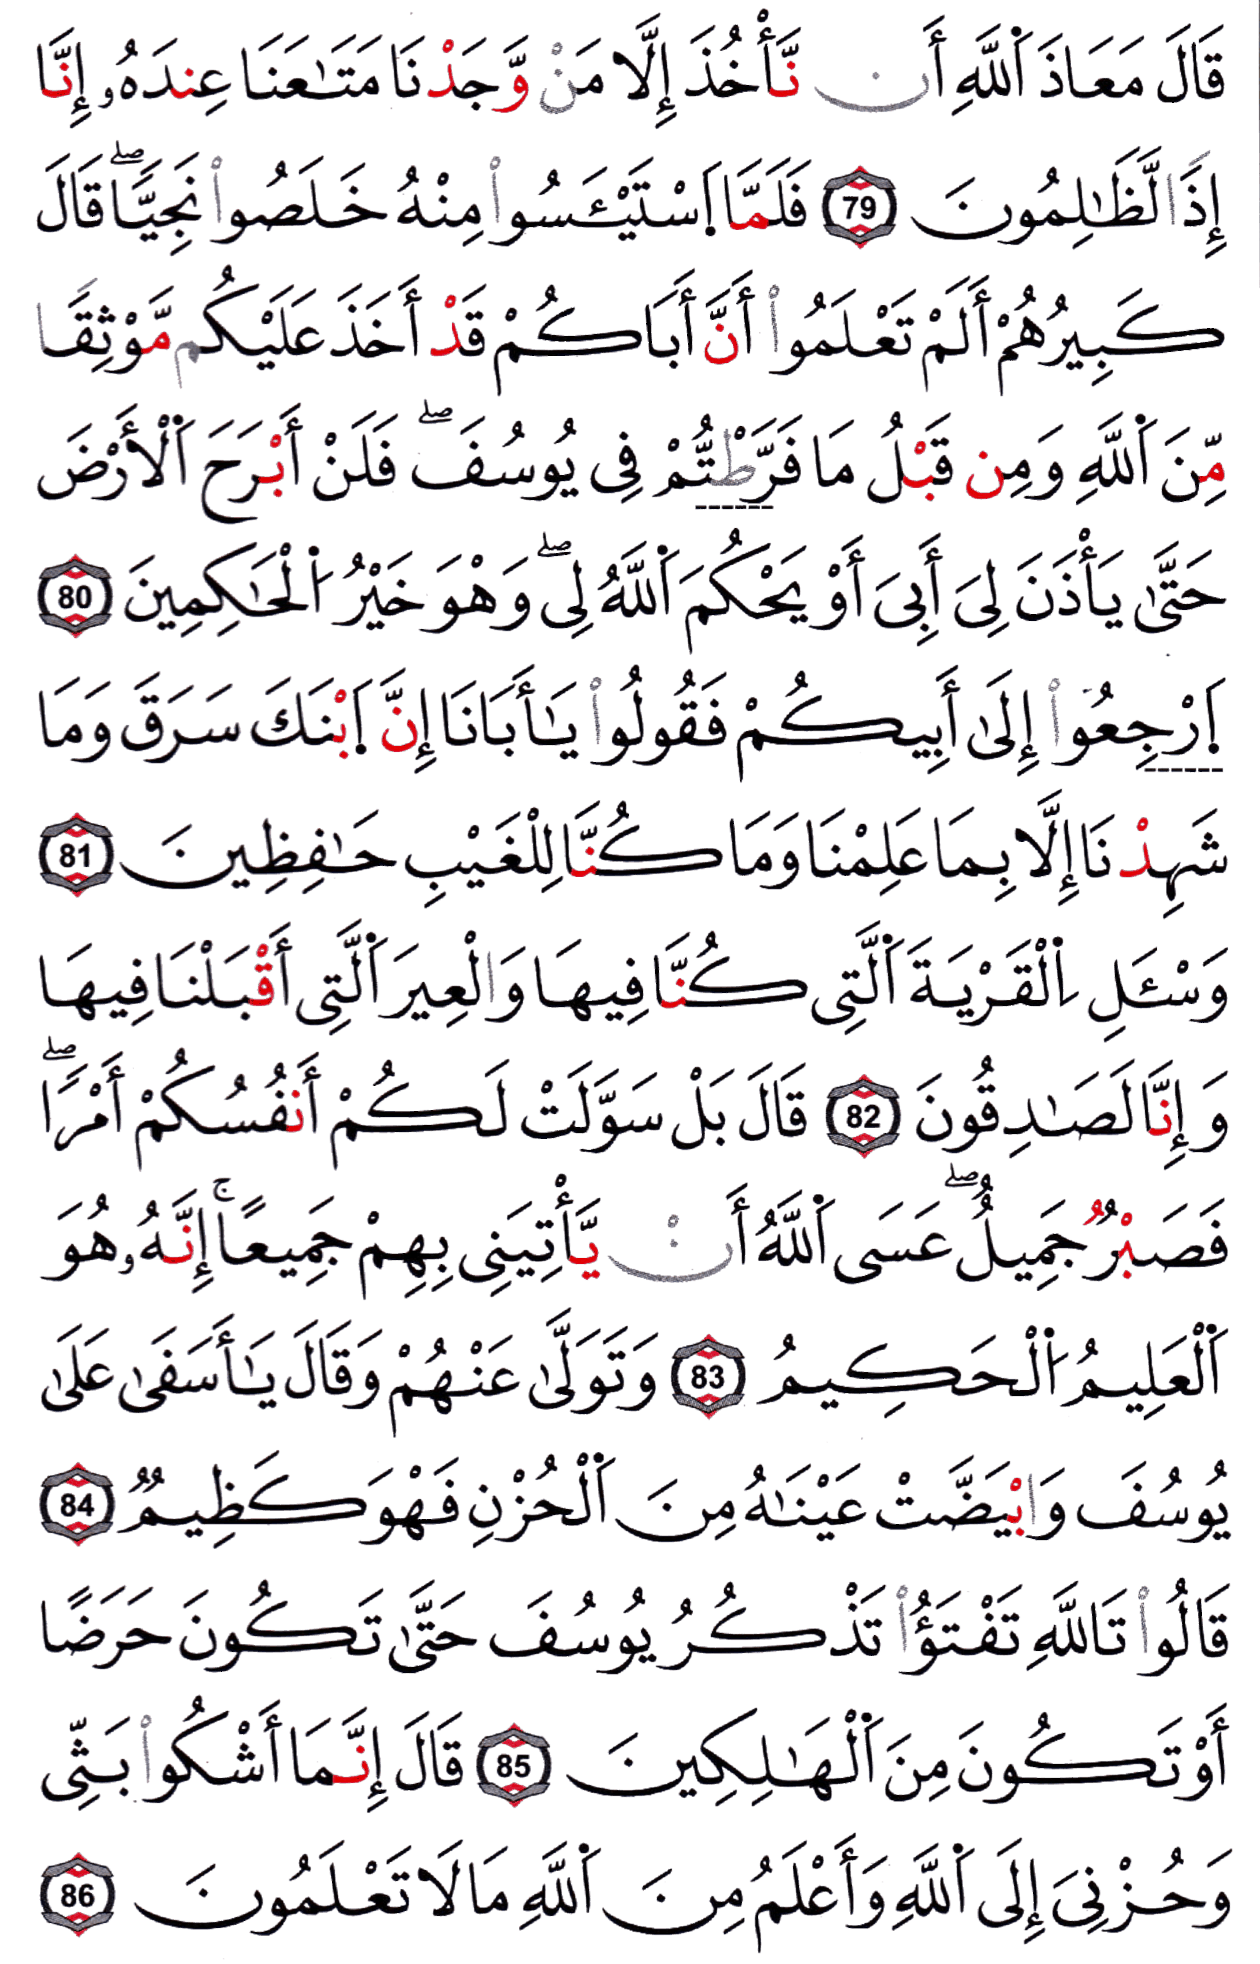 قَالَ مَعَاذَ اَ۬للَّهِ أَن نَّأْخُذَ إِلَّا مَنْ وَّجَدْنَا مَتَٰعَنَا عِندَهُۥ إِنَّا
إِذَا لَّظَٰلِمُونَ 79 فَلَمَّا اَ۪سْتَيْـَٔسُواْ مِنْهُ خَلَصُواْ نَجِيًّاۖ قَالَ
كَبِيرُهُمْ أَلَمْ تَعْلَمُواْ أَنَّ أَبَاكُمْ قَدْ أَخَذَ عَلَيْكُم مَّوْثِقًا
مِّنَ اَ۬للَّهِ وَمِن قَبْلُ مَا فَرَّطْتُّمْ فِى يُوسُفَۖ فَلَنْ أَبْرَحَ اَ۬لْأَرْضَ
حَتَّىٰ يَأْذَنَ لِىَ أَبِىَ أَوْ يَحْكُمَ اَ۬للَّهُ لِىۖ وَهْوَ خَيْرُ اُ۬لْحَٰكِمِينَ 80
اَ۪رْجِعُواْ إِلَىٰ أَبِيكُمْ فَقُولُواْ يَٰأَبَانَا إِنَّ اَ۪بْنَكَ سَرَقَ وَمَا
شَهِدْنَا إِلَّا بِمَا عَلِمْنَا وَمَا كُنَّا لِلْغَيْبِ حَٰفِظِينَ 81
وَسْـَٔلِ اِ۬لْقَرْيَةَ اَ۬لَّتِى كُنَّا فِيهَا وَالْعِيرَ اَ۬لَّتِى أَقْبَلْنَا فِيهَا
وَإِنَّا لَصَٰدِقُونَ 82 قَالَ بَلْ سَوَّلَتْ لَكُمْ أَنفُسُكُمْ أَمْرًاۖ
فَصَبْرٌ جَمِيلٌۖ عَسَى اَ۬للَّهُ أَنْ يَّأْتِيَنِى بِهِمْ جَمِيعًاۚ إِنَّهُۥ هُوَ
اَ۬لْعَلِيمُ اُ۬لْحَكِيمُ 83 وَتَوَلَّىٰ عَنْهُمْ وَقَالَ يَٰأَسَفَىٰ عَلَىٰ
يُوسُفَ وَابْيَضَّتْ عَيْنَٰهُ مِنَ اَ۬لْحُزْنِ فَهْوَ كَظِيمٌ 84
قَالُواْ تَاللَّهِ تَفْتَؤُاْ تَذْكُرُ يُوسُفَ حَتَّىٰ تَكُونَ حَرَضًا
أَوْ تَكُونَ مِنَ اَ۬لْهَٰلِكِينَ 85 قَالَ إِنَّمَا أَشْكُواْ بَثِّى
وَحُزْنِىَ إِلَى اَ۬للَّهِ وَأَعْلَمُ مِنَ اَ۬للَّهِ مَا لَا تَعْلَمُونَ 86